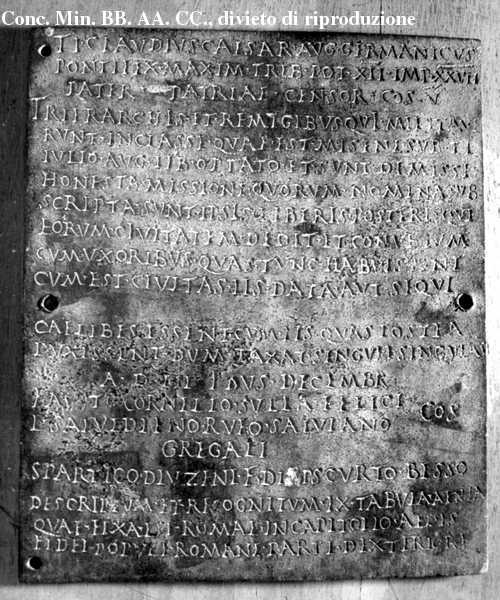 Conc. Min. BB. AA. CC., divieto di riproduzione
TI·CLAUDIUS·CAESAR·AUG·GERMANICUS
PONTIFEX·MAXIM·TRIB·POT·XII·IMP·XXVII
PATER·PATRIAE·CENSOR·COS·V
TRIERARCHIS·ET·REMIGIBUS·QUI·MILITAV
RUNT·IN·CLASSE·QUAE·EST·MISENI·SUB·TI
IULIO·AUG·LIB·OPTATO·ET·SUNT·DIMISSI
HONESTA·MISSIONE·QUORUM·NOMINA·SUB
SCRIPTA·SUNT·IPSIS·LIBERIS·POSTERISQUE
EORUM·CIVITATEM·DEDIT·ET·CONUBIUM
CUM·UXORIBUS·QUAS·TUNC·HABUISSENT
CUM·EST·CIVITAS·IIS·DATA·AUT·SIQUI
CAELIBES·ESSENT·CUM·IIS·QUAS·POSTEA
DUXISSENT·DUM·TAXAT·SINGULI·SINGULAS
A·D·III·IDUS·DECEMBR
FAUSTO·CORNELIO·SULLA·FELICE
COS
L·SALVIDIENO·RUFO·SALVIANO
GREGALI
SPARTICO·DIUZENI·F·DIPSCURTO·BESSO
DESCRIPTUM·ET·RECOGNITUM·EX·TABULA·AENEA
QUAE·FIXA·EST·ROMAE·IN·CAPITOLIO·AEDIS
FIDEI·POPULI·ROMANI·PARTE·DEXTERIORE